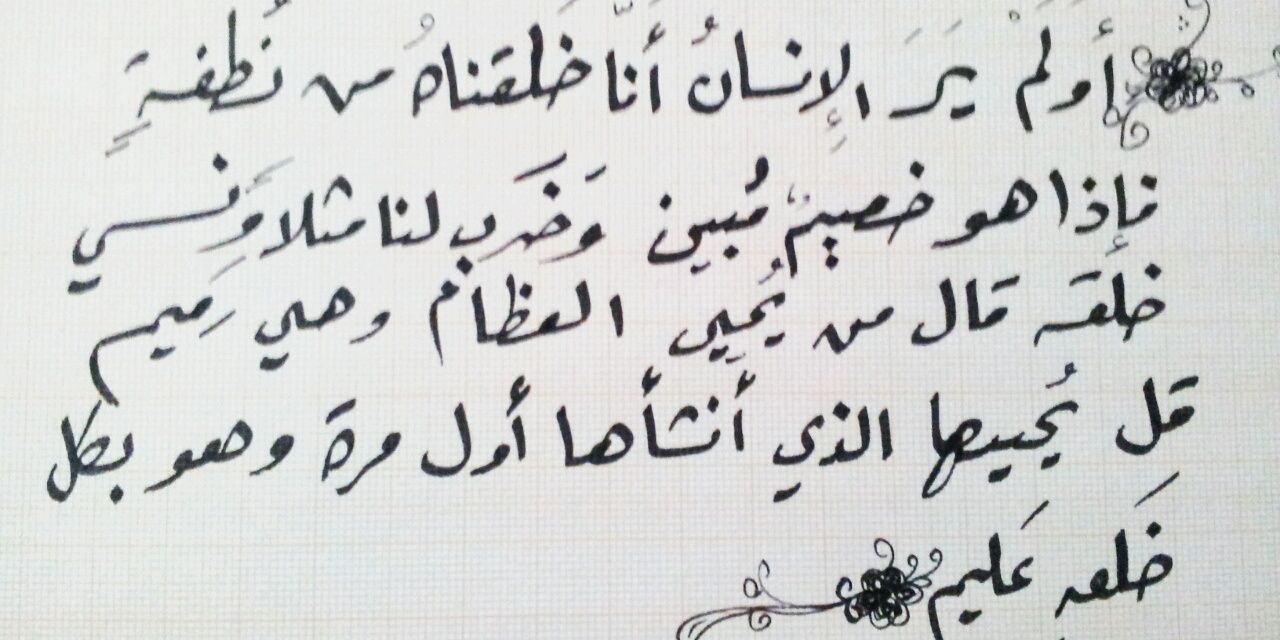 أولَمْ يَرَ الإِنسانُ أنَّا خَلَقناهُ من نُطفةٍ
فإذا هو خصيمٌ مُبين وَضَرَب لنا مثلا وَنسي
خلقه قال من يُحيِي العظام وهي رَميم
قل يُحييها الذي أنشأها أول مرة وهو بكل
خَلقٍ عَليم